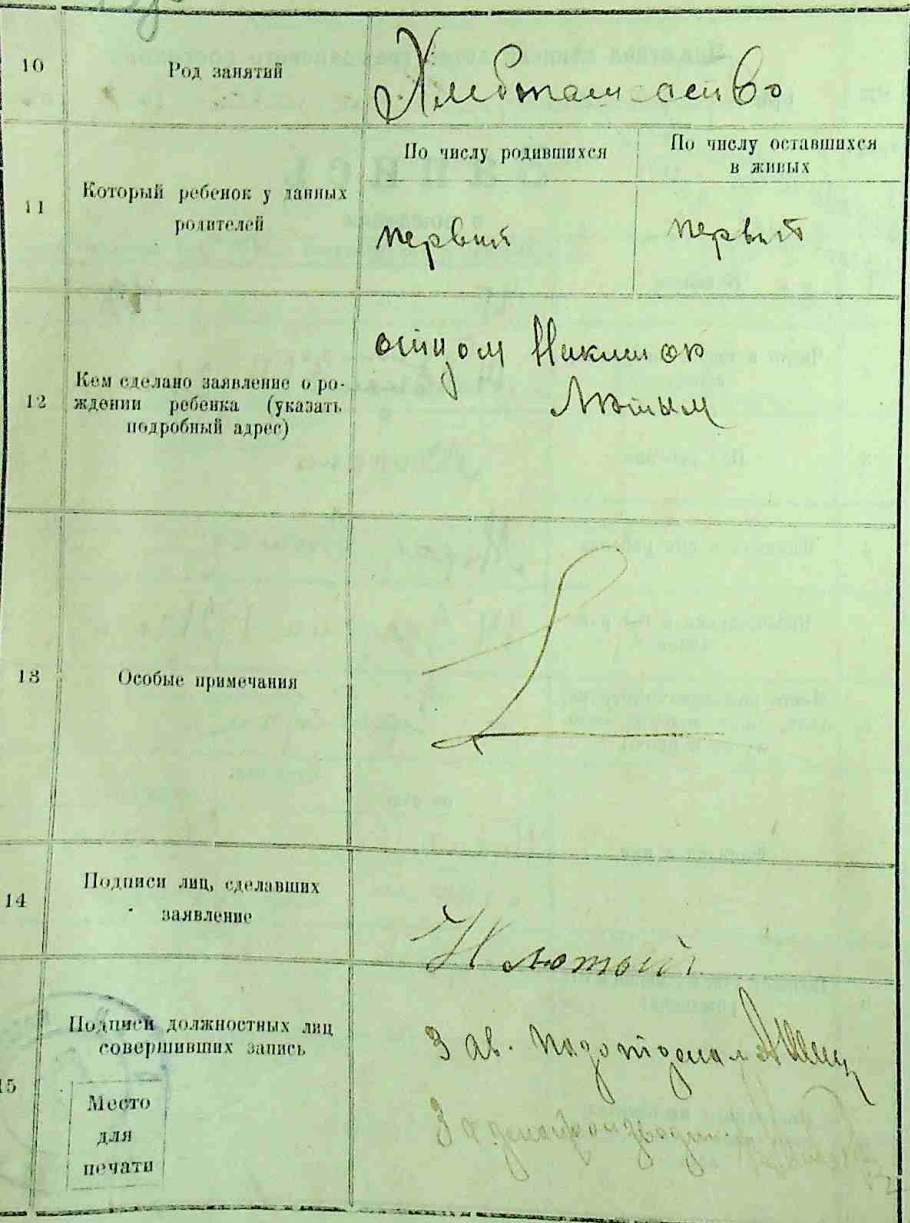 10
Род занятий
Хлебопашество
11
Который ребенок у данных
родителей
По числу родившихся
По числу оставшихся
в живых
первый
первый
12
Кем сделано заявление о ро-
ждении ребенка (указать
подробный адрес)
отцом
Лютым
13
Особые примечания
14
Подписи лиц, сделавших
заявление
Н лютый
15
Подписи должностных лиц
совершивших запись
Зав. подотделом
За делопроизводит.
Место
для
печати